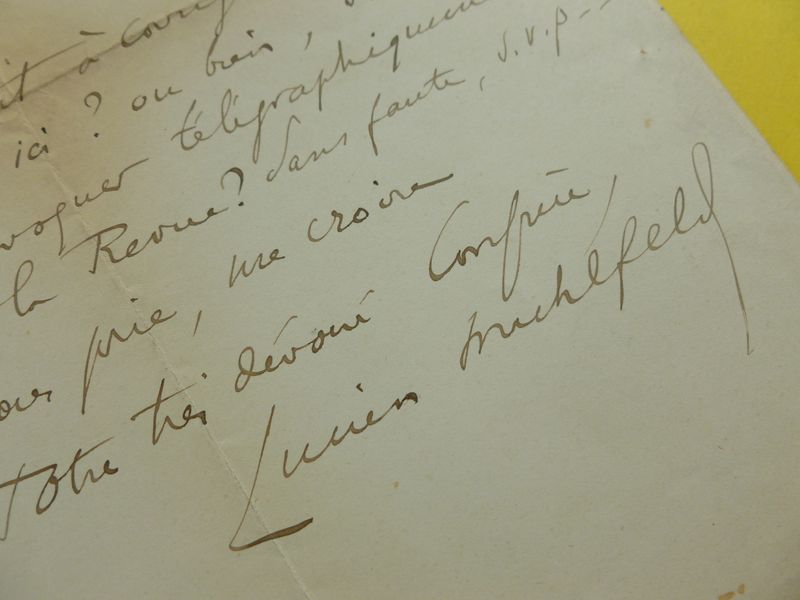 à
ici ? ou bien,
télégraphiquem
la Revue ? Sans faute, s.v.p--
prie, me croire
Votre très dévoué Confrère,
Lucien Muhlfeld